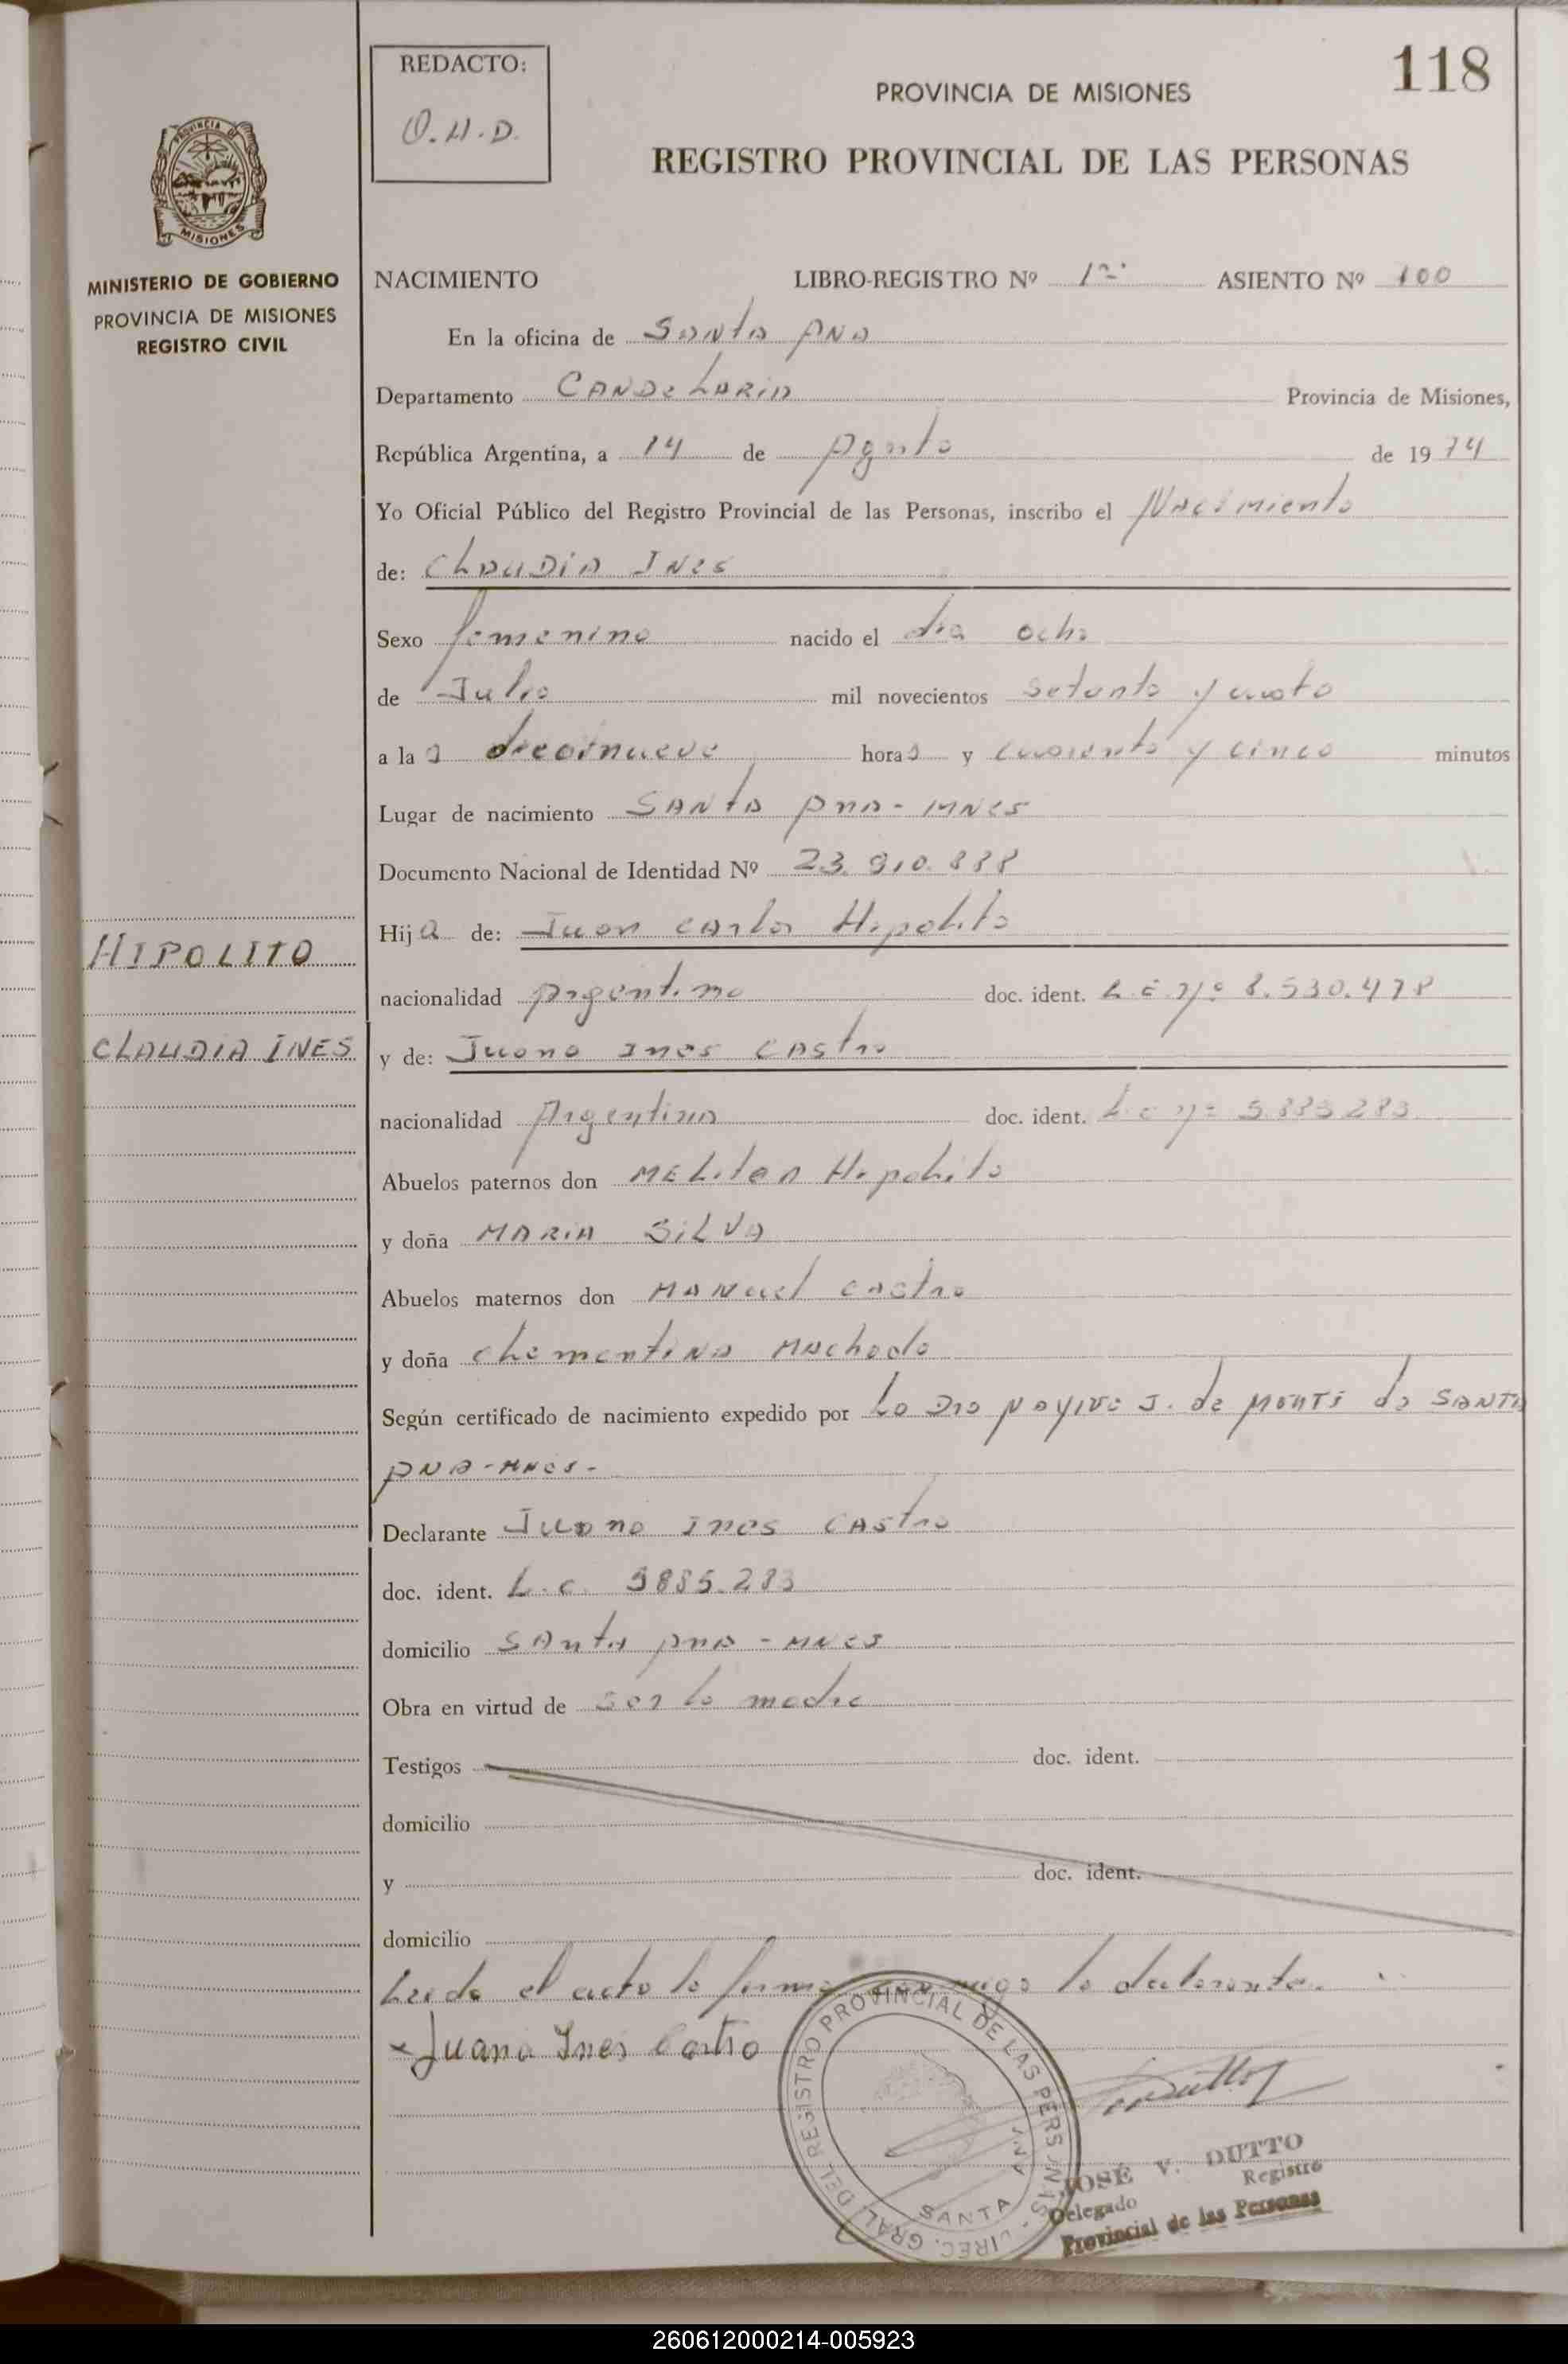 REDACTO:
O.H.D.
118
PROVINCIA DE MISIONES
REGISTRO PROVINCIAL DE LAS PERSONAS
PROVINCIA DE
MISIONES
MINISTERIO DE GOBIERNO
PROVINCIA DE MISIONES
REGISTRO CIVIL
NACIMIENTO LIBRO-REGISTRO Nº 1º ASIENTO Nº 100
En la oficina de SANTA ANA
Departamento CANDELARIA Provincia de Misiones,
República Argentina, a 14 de Agosto de 1974
Yo Oficial Público del Registro Provincial de las Personas, inscribo el Nacimiento
de: CLAUDIA INES
Sexo femenino nacido el dia ocho
de Julio mil novecientos setenta y cuatro
a las diecinueve horas y cuarenta y cinco minutos
Lugar de nacimiento SANTA ANA - MNES
Documento Nacional de Identidad Nº 23.910.888
HIPOLITO
Hija de: Juan Carlos Hipolito
nacionalidad Argentino doc. ident. L.E. Nº 8.530.478
CLAUDIA INES
y de: Juana Ines Castro
nacionalidad Argentina doc. ident. L C Nº 5.885.283
Abuelos paternos don Meliton Hipolito
y doña MARIA SILVA
Abuelos maternos don Manuel Castro
y doña Clementina Machado
Según certificado de nacimiento expedido por La Dra J. de de SANTA
ANA - MNES -
Declarante Juana Ines Castro
doc. ident. L.C. 5885.283
domicilio SANTA ANA - MNES
Obra en virtud de ser la madre
Testigos doc. ident.
domicilio
y doc. ident.
domicilio
Leida el acta la firma conmigo la declarante.
x Juana Ines Castro
DIREC. GRAL. DEL REGISTRO PROVINCIAL DE LAS PERSONAS
SANTA ANA
JOSÉ V. DUTTO
Delegado Registro
Provincial de las Personas
260612000214-005923